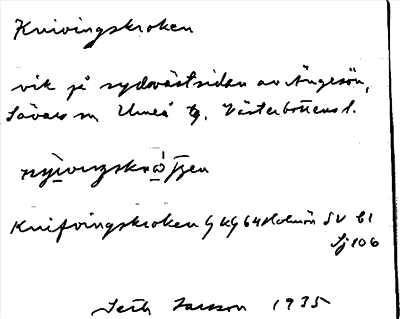 Knivingskroken
vik på sydvästsidan av Ängesön,
Sävars sn Umeå tg. Västerbottens l.
Knifvingskroken G kg 64 Holmön SV bl
Sj 106
Seth Larsson 1935